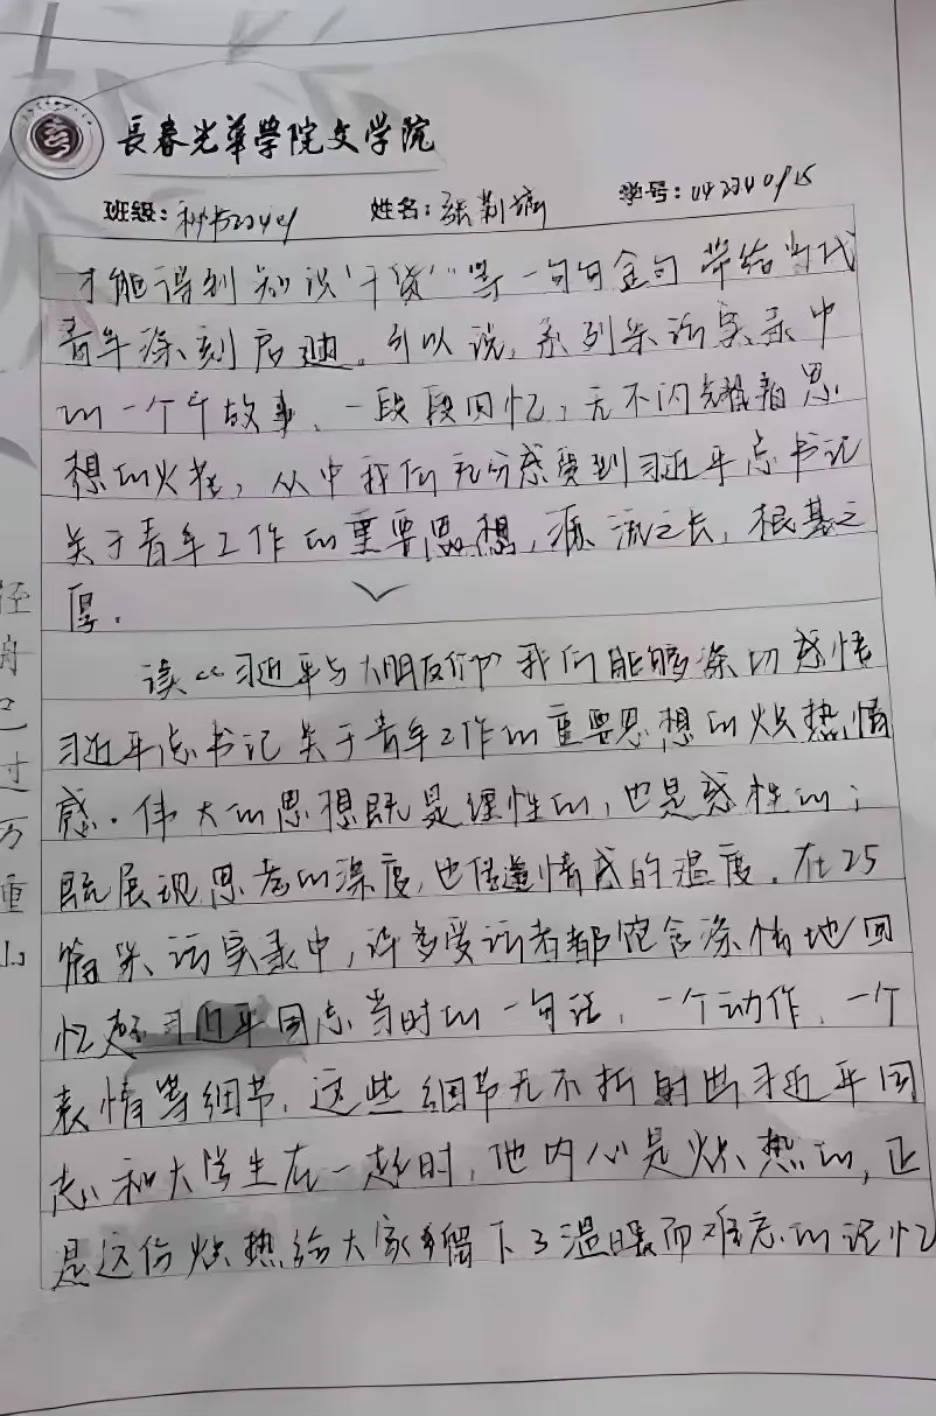 長春光華學院文学院
班级: 秘书22404 姓名: 张 学号: 042240915
才能得到知识“干货”等一句句金句带给当代
青年深刻启迪。可以说，系列采访实录中
的一个个故事、一段段回忆，无不闪耀着思
想的火花，从中我们充分感受到习近平总书记
关于青年工作的重要思想，源流之长，根基之
厚.
读《习近平与大朋友们》我们能够深切感悟
习近平总书记关于青年工作的重要思想的炽热情
感.伟大的思想既是理性的，也是感性的；
既展现思考的深度，也传递情感的温度。在25
篇采访实录中，许多受访者都饱含深情地回
忆起习近平同志当时的一句话、一个动作、一个
表情等细节，这些细节无不折射出习近平同
志和大学生在一起时，他内心是炽热的，正
是这份炽热给大家留下了温暖而难忘的记忆
径舟已过万重山